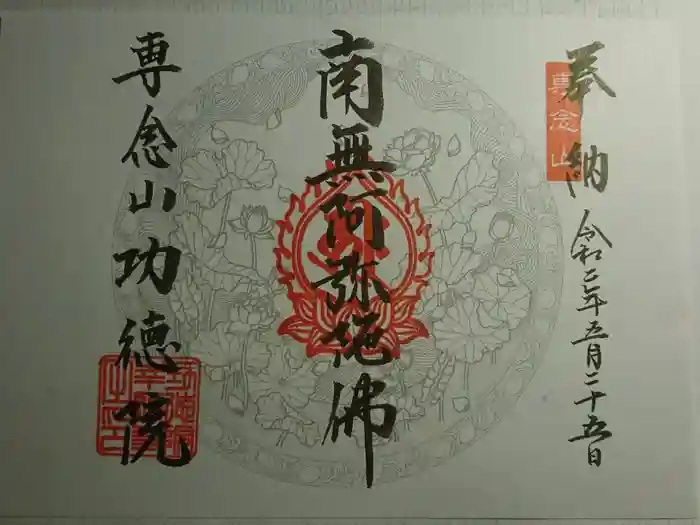 奉納
令和二年五月二十五日
専念山
南無阿弥陀佛
専念山功徳院